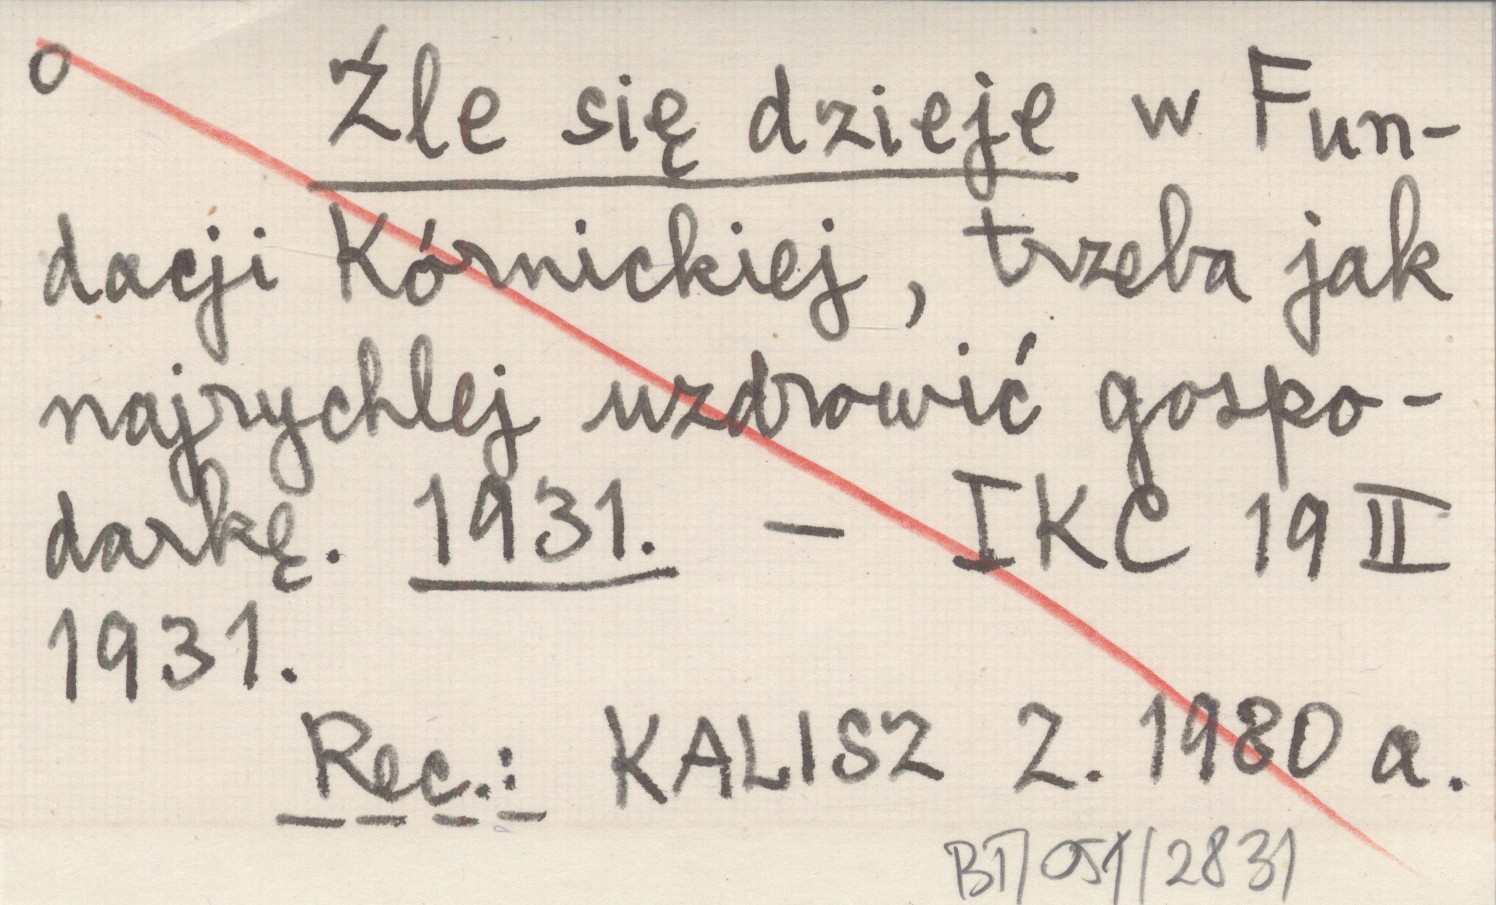 o Źle się dzieje w Fun-
dacji Kórnickiej, trzeba jak
najrychlej uzdrowić gospo-
darkę. 1931. — IKC 19 II
1931.
Rec.: KALISZ Z. 1980 a.
BT/051/2831